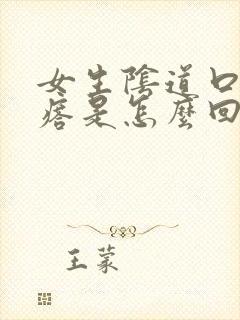 女生陰道口
痞是怎麼回
王蒙